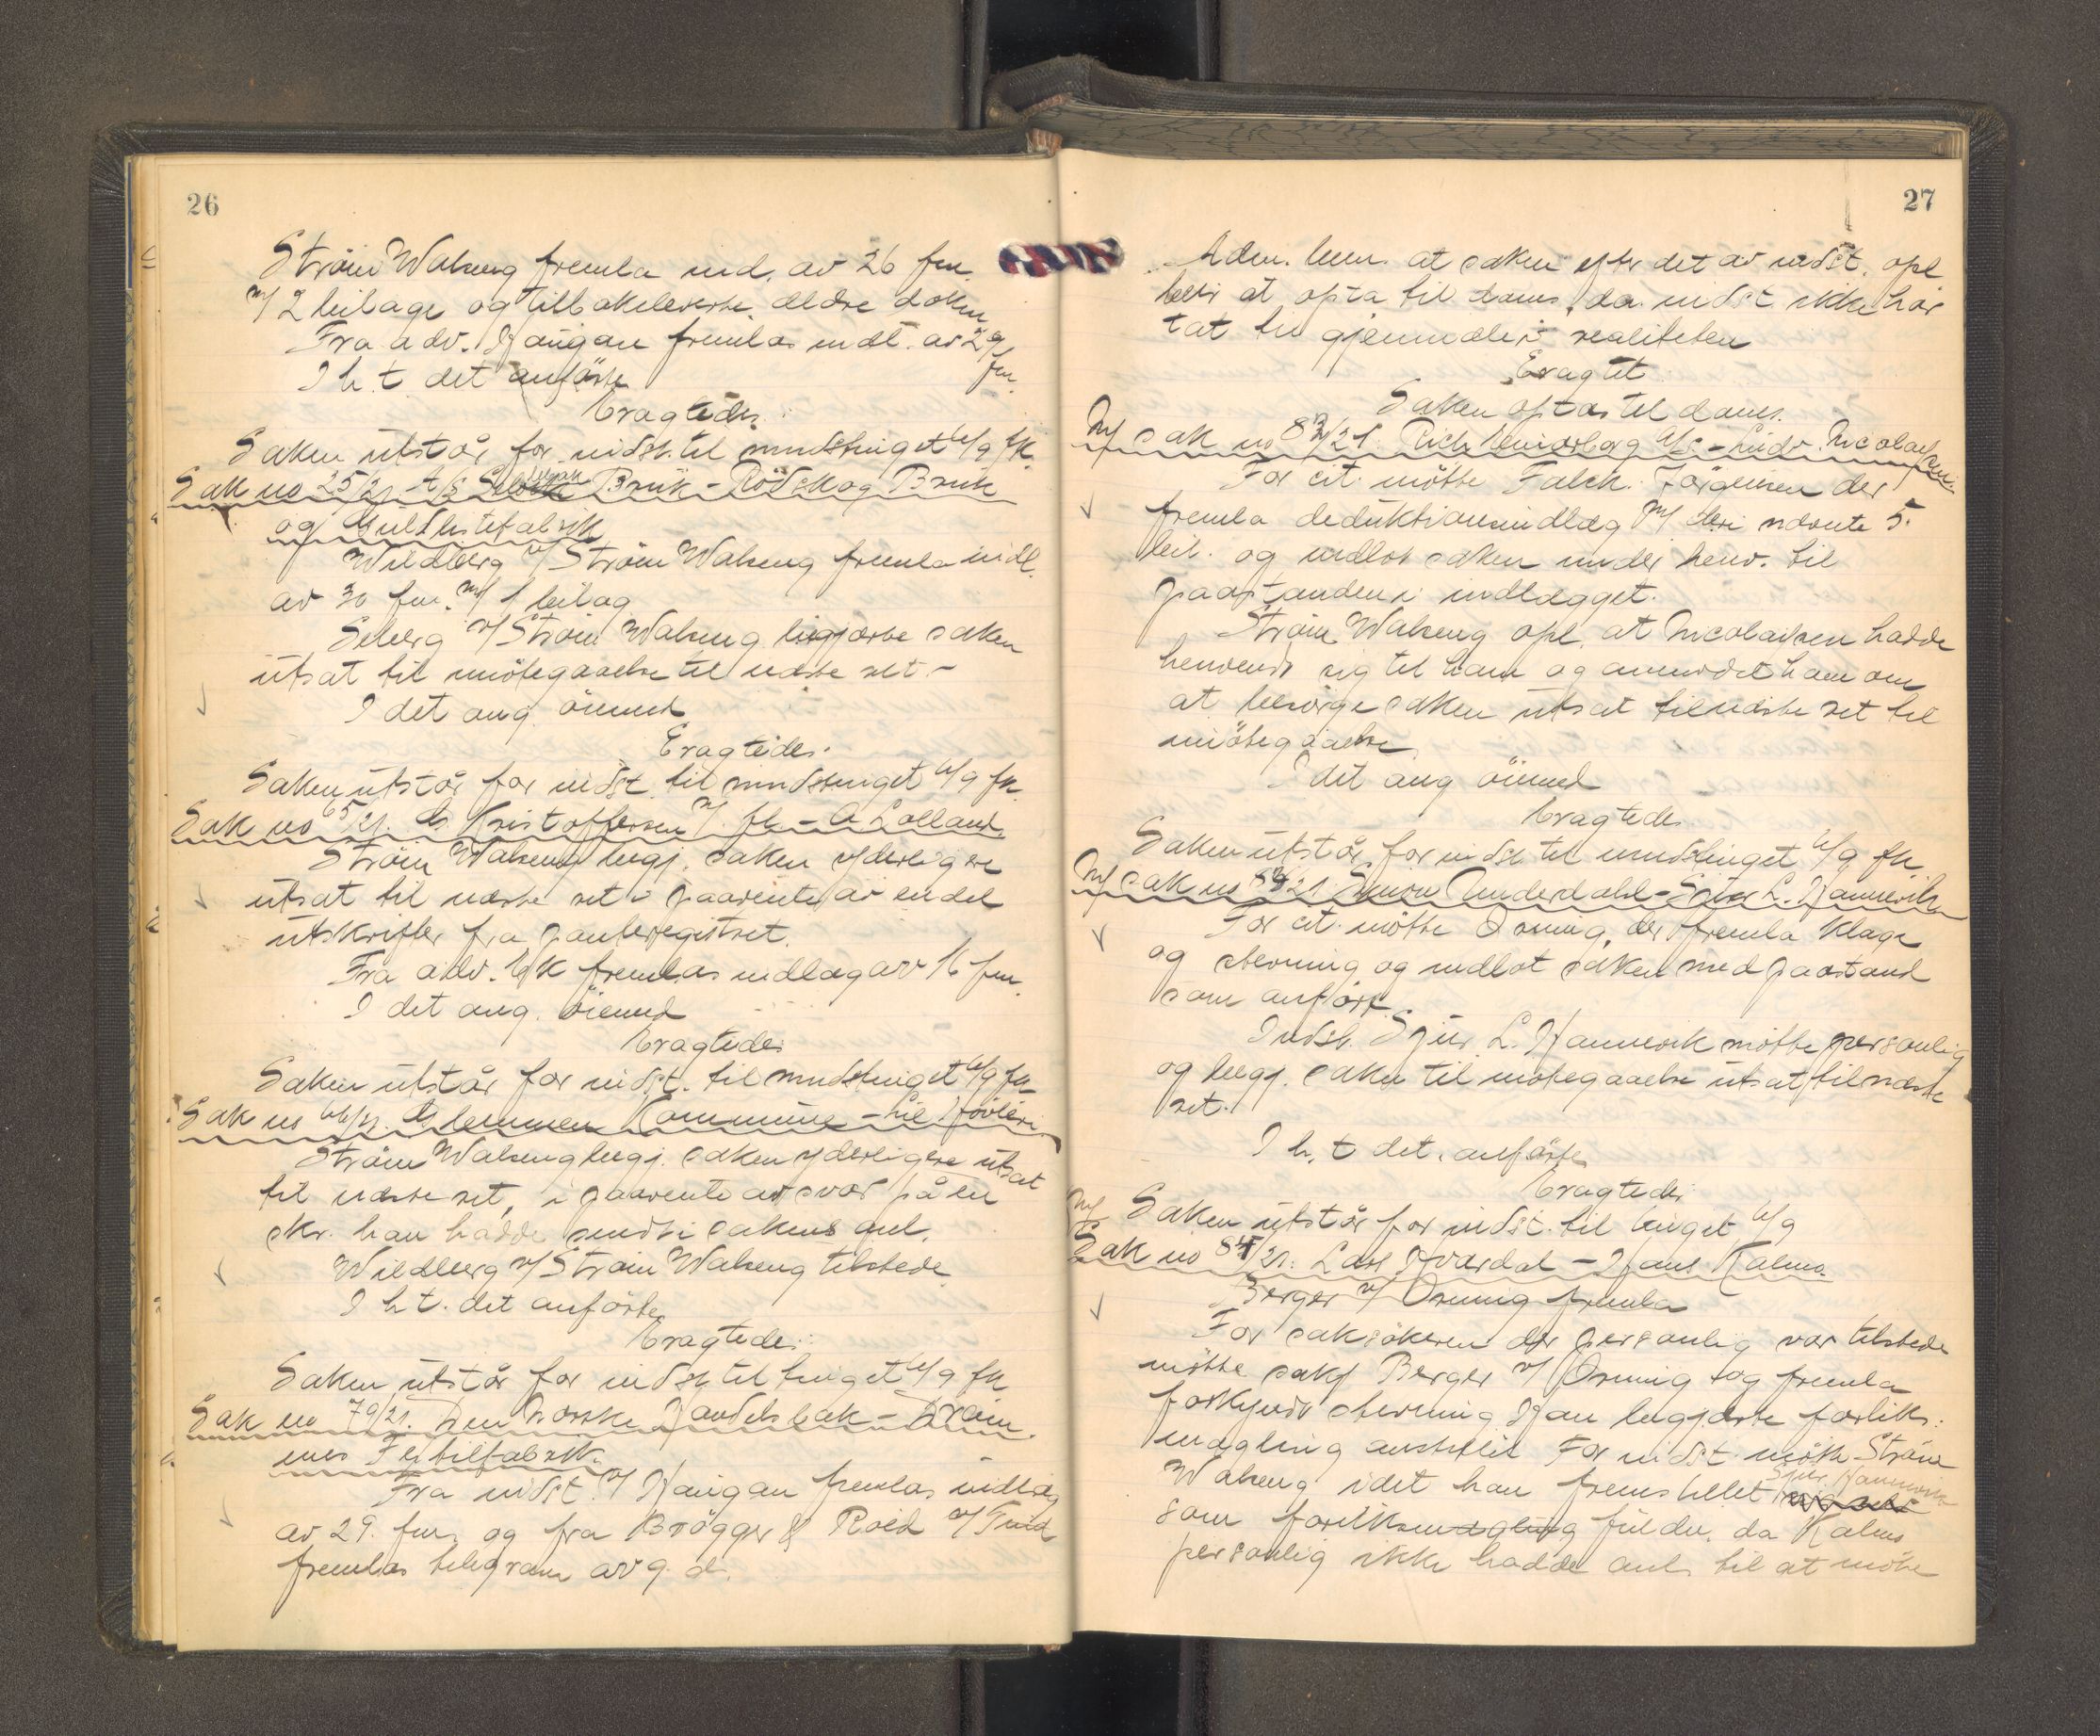 26
Ström Walseng fremla ind. av 26 fm.
m/ 2 bilage og tilbakeleverte ældre dokm
Fra adv. Haugan fremlas indl. av 29/
fm.
I h. t det anförte
Eragtedes:
Saken utstår for indst. til mndstinget 6/9 fk.
Sak no 25/21 A/S Bruk - Rödskog Bruk
og Gullistefabrik
Wildberg v/ Ström Walseng fremla indl.
av 30 fm. m/ 1 bilag
Seberg v/ Ström Walseng begjærte saken
utsat til imötegaaelse til næste ret -
I det ang. öiemed
Eragtedes.
Saken utstår for indst. til mndstinget 6/9 fk.
Sak no 65/21. Kristoffersen m/ fl - A Lolland.
Ström Walseng begj. saken yderligere
utsat til næste ret i paavente av endel
utskrifter fra panteregistret.
Fra adv. Eek fremlas indlæg av 16 fm.
I det ang. öiemed
Eragtedes
Saken utstår for indst. til mndstinget 6/9 fk
Sak no 66/21. Glemmen Kommune -
Ström Walseng begj. saken yderligere utsat
til næste ret, i paavente av svar på en
skr. han hadde sendt i sakens anl.
Wildberg v/ Ström Walseng tilstede
I h t. det anförte
Eragtedes:
Saken utstår for indst til tinget 6/9 fk
Sak no 79/21. Den Norske Handelsbak -
nes Textilfabrik.
Fra indst. v/ Haugan fremlas indlæg
av 29. fm. og fra Brögger & Roed v/ Tvid
fremlas telegram av g. d.
27
Adm. bem. at saken efter det av indst. opl
blir at opta til doms, da indst ikke har
tat til gjenmæle i realiteten
Eragtet
Saken optas til doms.
Ny sak no 83/21. Rich A/S - Ludv. Nicolaysen.
For cit. mötte Falck. Jörgensen der
fremla deduktionsindlæg m/ deri nævnte 5.
bil. og indlot saken under henv. til
paastanden i indlægget.
Ström Walseng opl. at Nicolaisen hadde
henvendt sig til ham og anmodet ham om
at besörge saken utsat til næste ret til
imötegaaelse
I det ang öiemed
Eragtedes
Saken utstår for indst til mndstinget 6/9 fk.
Ny sak no 21 Simon Underdahl - Sjur L. Hamnevik
For cit. mötte Orning, der fremla klage
og stevning og indlot saken med paastand
som anfört.
Indst. Sjur L. Hamnevik mötte personlig
og begj. saken til imötegaaelse utsat til næste
ret.
I h. t det. anförte
Eragtedes
Saken utstår for indst. til tinget 6/9
Ny
Sak no 84/21. Lars Hværdal - Hans Kalmo.
Berger v/ Orning fremla
For saksökeren der personlig var tilstede
mötte sakf Berger v/ Orning og fremla
forkyndt stevning. Han begjærte forliks-
mægling anstillet For indst. mötte Ström
Walseng idet han fremstillet Sjur Hamnevik
som forliksmægling fuldm. da Kalmo
personlig ikke hadde anl. til at möte